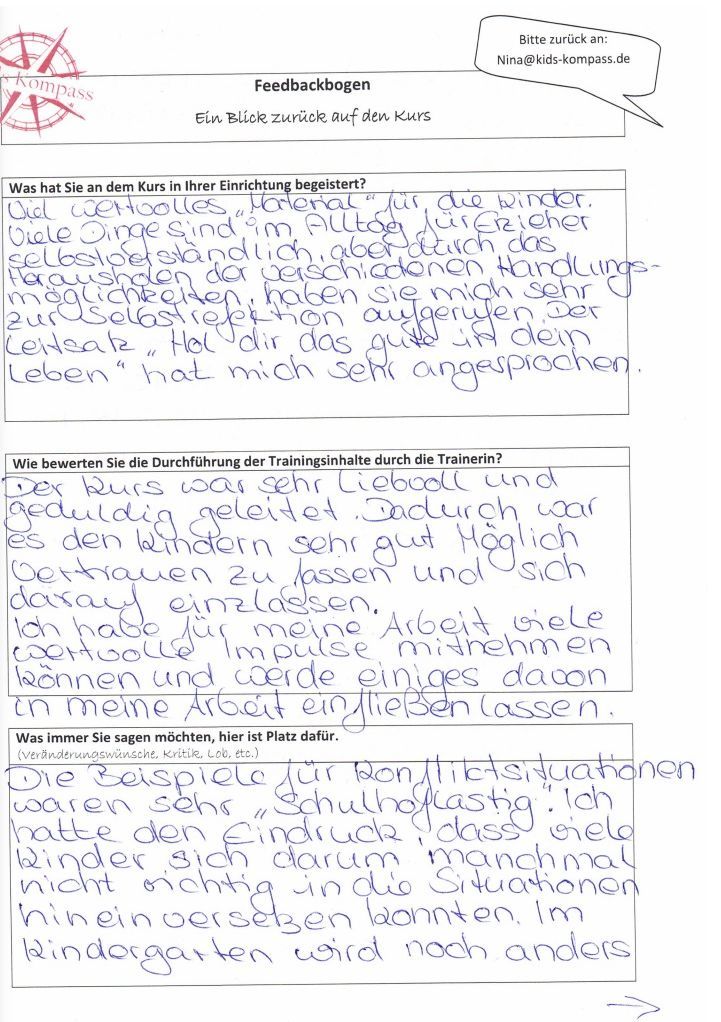 Bitte zurück an:
Nina@kids-kompass.de
s Kompass
Feedbackbogen
Ein Blick zurück auf den Kurs
Was hat Sie an dem Kurs in Ihrer Einrichtung begeistert?
Viel wertvolles „Material" für die Kinder.
Viele Dinge sind im Alltag für Erzieher
selbstverständlich, aber durch das
Herausholen der verschiedenen Handlungs-
möglichkeiten, haben sie mich sehr
zur Selbstrefektion aufgerufen. Der
Leitsatz „Hol dir das gute in dein
Leben" hat mich sehr angesprochen.
Wie bewerten Sie die Durchführung der Trainingsinhalte durch die Trainerin?
Der Kurs war sehr Liebvoll und
geduldig geleitet. Dadurch war
es den Kindern sehr gut Möglich
Vertrauen zu fassen und sich
darauf einzlassen.
Ich habe für meine Arbeit viele
wertvolle Impulse mitnehmen
können und werde einiges davon
in meine Arbeit einfließen lassen.
Was immer Sie sagen möchten, hier ist Platz dafür.
(Veränderungswünsche, Kritik, Lob, etc.)
Die Beispiele für Konfliktsituationen
waren sehr „Schulhoflastig". Ich
hatte den Eindruck, dass viele
Kinder sich darum manchmal
nicht richtig in die Situationen
hinein versetzen konnten. Im
Kindergarten wird noch anders